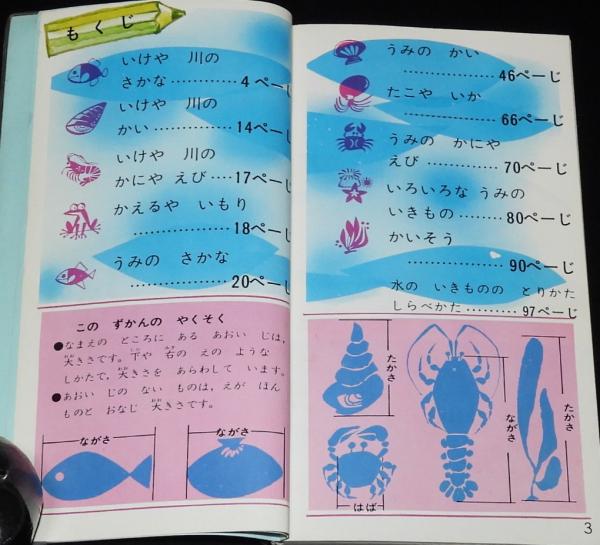 もくじ
いけや 川の
さかな…………4ぺーじ
いけや 川の
かい……………14ぺーじ
いけや 川の
かにや えび…17ぺーじ
かえるや いもり
……………18ぺーじ
うみの さかな
……………20ぺーじ
この ずかんの やくそく
●なまえの ところに ある あおい じは,
大きさです。下や 右の えの ような
しかたで,大きさを あらわして います。
●あおい じの ない ものは,えが ほん
ものと おなじ 大きさです。
ながさ
ながさ
うみの かい
……………46ぺーじ
たこや いか
……………66ぺーじ
うみの かにや
えび……………70ぺーじ
いろいろな うみの
いきもの………80ぺーじ
かいそう
……………90ぺーじ
水の いきものの とりかた
しらべかた………97ぺーじ
たかさ
はば
ながさ
たかさ
3